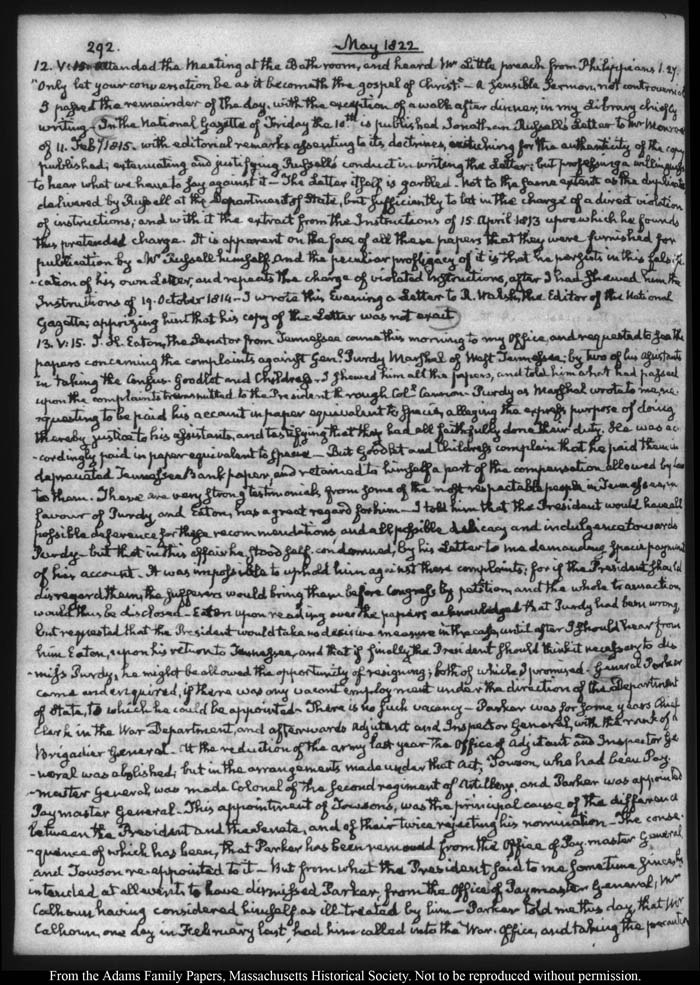 292. May 1822
12. V:15. attended the Meeting at the Bath room, and heard Mr Little preach from Philippians 1.27.
"Only let your conversation be as it becometh the gospel of Christ" — A sensible Sermon, not controversial
I passed the remainder of the day, with the exception of a walk after dinner, in my Library chiefly
writing — In the National Gazette of Friday the 10th is published Jonathan Russell's Letter to Mr Monroe
of 11. Feby 1815. with editorial remarks assenting to its doctrines, for the authenticity of the copy
published; extenuating and justifying Russell's conduct in writing the Letter; but professing a willingness
to hear what we have to say against it — The Letter itself is garbled — not to the same extent as the duplicate
delivered by Russell at the Department of State, but sufficiently to let in the charge of a direct violation
of instructions; and with it the extract from the Instructions of 15 April 1813 upon which he founds
this pretended charge. It is apparent on the face of all these papers that they were furnished for
publication by Mr Russell himself, and the peculiar profligacy of it is that he persists in this falsifi-
-cation of his own Letter, and repeats the charge of violated Instructions, after I had shewed him the
Instructions of 19. October 1814 — I wrote this Evening a Letter to R. Walsh, the Editor of the National
Gazette; apprizing him that his copy of the Letter was not exact.
13. V:15. J. H. Eaton, the Senator from Tennessee came this morning to my office, and requested to see the
papers concerning the complaints against Genl. Purdy Marshal of West Tennessee; by two of his assistants
in taking the Census. Goodlet and Childress. I shewed him all the papers, and told him what had passed
upon the complaints transmitted to the President through Coll. Cannon. Purdy as Marshal wrote to me, re-
questing to be paid his account in paper equivalent to specie, alleging the express purpose of doing
thereby justice to his assistants, and testifying that they had all faithfully done their duty. He was ac-
-cordingly paid in paper equivalent to specie — But Goodlet and Childress complain that he paid them in
depreciated Tennessee Bank paper, and retained to himself a part of the compensation allowed by law
to them. There are very strong testimonials, from some of the most respectable people in Tennessee, in
favour of Purdy and Eaton, has a great regard for him — I told him that the President would have all
possible deference for these recommendations and all possible delicacy and indulgence towards
Purdy — but that in this affair he stood self-condemned, by his Letter to me demanding specie payment
of his account. It was impossible to uphold him against these complaints; for if the President should
disregard them, the sufferers would bring them before Congress by petition, and the whole transaction
would thus be disclosed — Eaton upon reading over the papers acknowledged that Purdy had been wrong,
but requested that the President would take no decisive measure in the case, until after I should hear from
him Eaton, upon his return to Tennessee, and that if finally the President should think it necessary to dis
-miss Purdy, he might be allowed the opportunity of resigning; both of which I promised — General Parker
came and enquired, if there was any vacant employment under the direction of the Department
of State, to which he could be appointed. There is no such vacancy — Parker was for some years Chief
Clerk in the War Department, and afterwards Adjutant and Inspector General, with the rank of a
Brigadier General — At the reduction of the army last year the Office of Adjutant and Inspector Ge
-neral was abolished; but in the arrangements made under that Act, Towson, who had been Pay-
-master General, was made Colonel of the Second regiment of Artillery, and Parker was appointed
Paymaster General. This appointment of Towson's, was the principal cause of the difference
between the President and the Senate, and of their twice rejecting his nomination — The conse-
-quence of which has been, that Parker has been removed from the Office of Pay-master General
and Towson re-appointed to it — But from what the President said to me sometime since, he
intended at all events to have dismissed Parker, from the Office of Paymaster General; Mr
Calhoun having considered himself as ill treated by him — Parker told me this day, that Mr
Calhoun, one day in February last, had him called into the War-Office, and taking the precaution
From the Adams Family Papers, Massachusetts Historical Society. Not to be reproduced without permission.